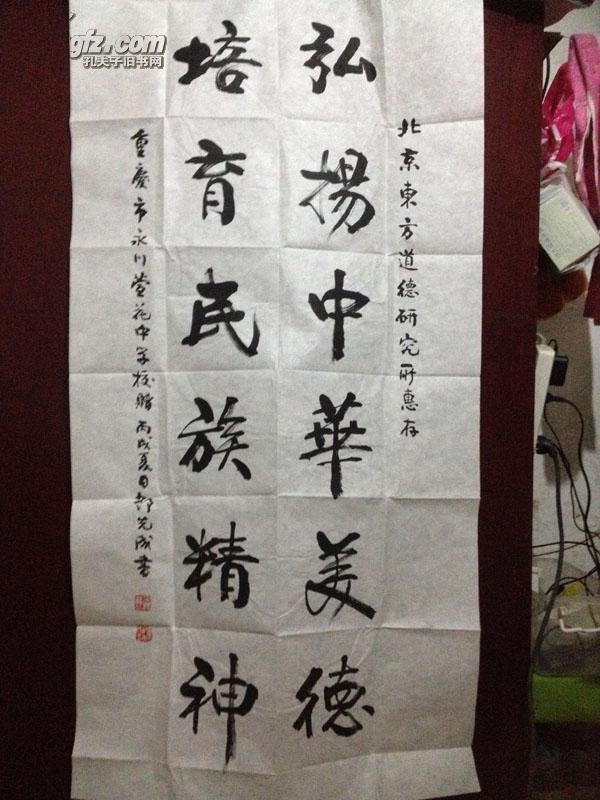 北京東方道德研究所惠存
弘揚中華美德
培育民族精神
重慶市永川萱花中学校贈 丙戌夏日部先成書
gfz.com
孔夫子旧书网